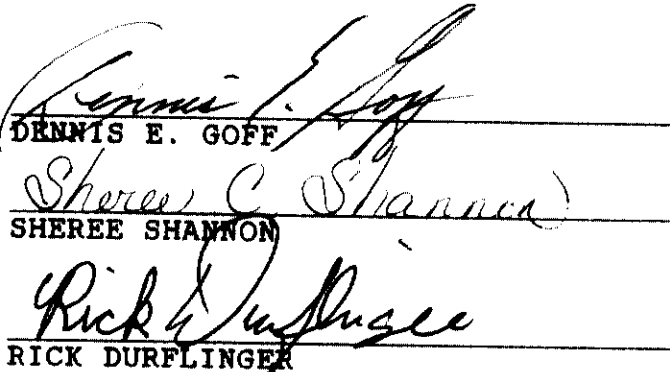 Dennis E. Goff
DENNIS E. GOFF
Sheree C Shannon
SHEREE SHANNON
Rick Durflinger
RICK DURFLINGER